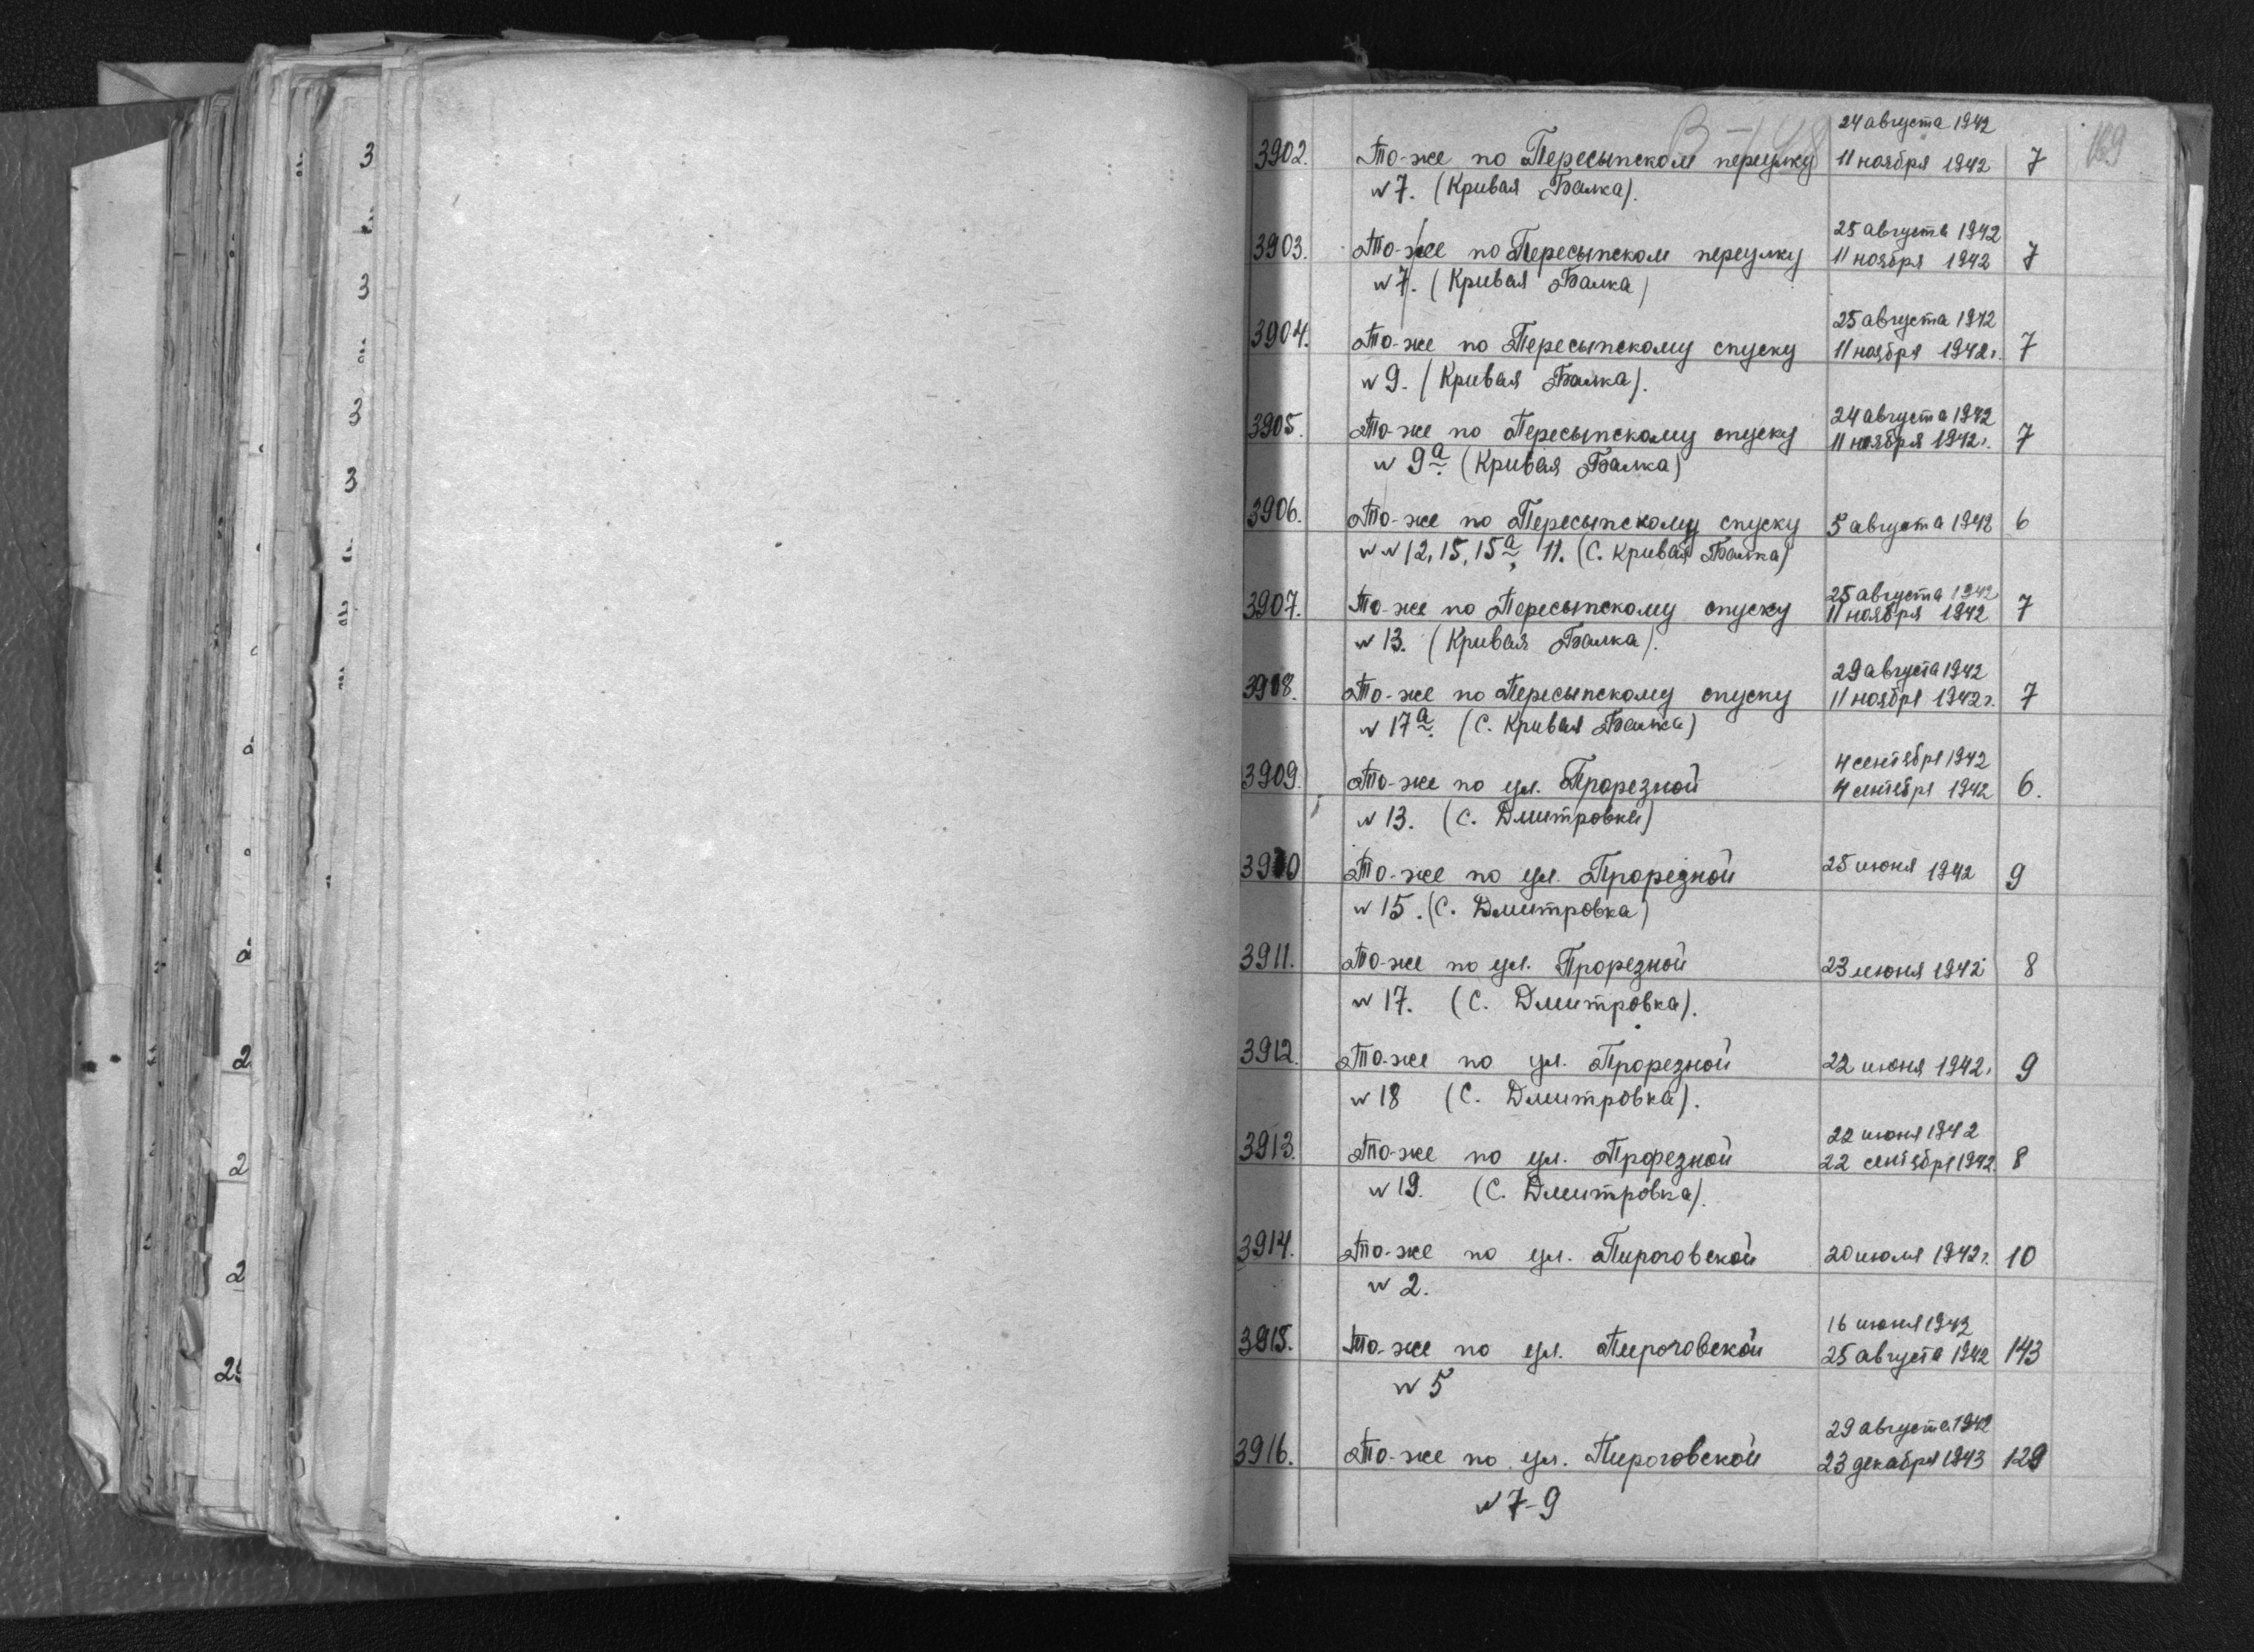 24 августа 1942
3902. То-же по Пересыпском переулку 11 ноября 1942 7
№ 7. (Кривая Балка).
25 августа 1942
3903. То-же по Пересыпском переулку 11 ноября 1942 7
№ 7. (Кривая Балка)
25 августа 1942
3904. То-же по Пересыпскому спуску 11 ноября 1942г. 7
№ 9. (Кривая Балка).
24 августа 1942
3905. То-же по Пересыпскому спуску 11 ноября 1942г. 7
№ 9а (Кривая Балка)
3906. То-же по Пересыпскому спуску 5 августа 1942 6
№№ 12, 15, 15а, 11. (С. Кривая Балка)
25 августа 1942
3907. То-же по Пересыпскому спуску 11 ноября 1942 7
№ 13. (Кривая Балка).
29 августа 1942
3908. То-же по Пересыпскому спуску 11 ноября 1942г. 7
№ 17а. (С. Кривая Балка)
4 сентября 1942
3909. То-же по ул. Прорезной 4 сентября 1942 6.
№ 13. (С. Дмитровка)
3910 То-же по ул. Прорезной 25 июня 1942 9
№ 15. (С. Дмитровка)
3911. То-же по ул. Прорезной 23 июня 1942 8
№ 17. (С. Дмитровка).
3912. То-же по ул. Прорезной 22 июня 1942г. 9
№ 18 (С. Дмитровка).
22 июня 1942
3913. То-же по ул. Прорезной 22 сентября 1942. 8
№ 19. (С. Дмитровка).
3914. То-же по ул. Пироговской 20 июля 1942г. 10
№ 2.
16 июня 1942
3915. То-же по ул. Пироговской 25 августа 1942 143
№ 5
29 августа 1942
3916. То-же по ул. Пироговской 23 декабря 1943 129
№ 7-9